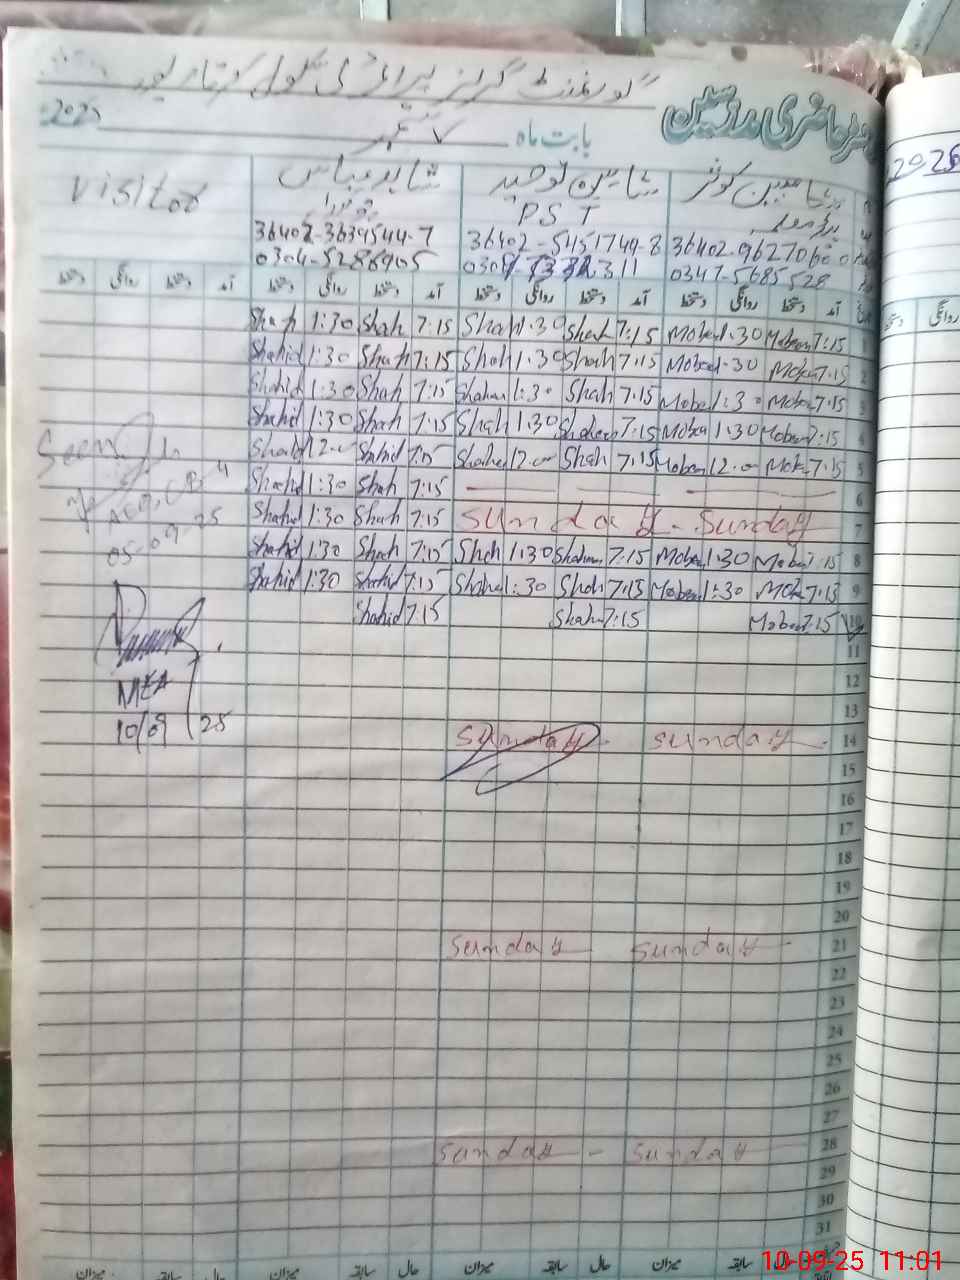 گورنمنٹ گرلز پرائمری سکول
رجسٹر حاضری مدرسین
بابت ماہ ستمبر 2025
visitor
شاہد عباس
شاہین توحید
مبین کوثر
PST
36402-3639544-7
36402-5451749-8
36402-0962706
0304-5286905
0347-5685528
دستخط روانگی دستخط آمد دستخط روانگی دستخط آمد دستخط روانگی دستخط آمد دستخط روانگی دستخط آمد
Shah 1:30 Shah 7:15 Shah 1:30 Shah 7:15 Mobeen 1:30 Mobeen 7:15 1
Shahid 1:30 Shah 7:15 Shah 1:30 Shah 7:15 Mobe 1:30 Mobe 7:15 2
Shahid 1:30 Shah 7:15 Shaheen 1:30 Shah 7:15 Mobe 1:30 Mobe 7:15 3
Shahid 1:30 Shah 7:15 Shah 1:30 Shaheen 7:15 Mobee 1:30 Mobeen 7:15 4
Shahid 12:00 Shahid 7:15 Shahee 12:00 Shah 7:15 Mobeen 12:00 Mobe 7:15 5
Shahid 1:30 Shah 7:15 6
Shahid 1:30 Shah 7:15 Sunday - Sunday 7
Shahid 1:30 Shah 7:15 Shah 1:30 Shaheen 7:15 Mobee 1:30 Mobee 7:15 8
Shahid 1:30 Shahid 7:15 Shahe 1:30 Shah 7:15 Mobeen 1:30 Mob 7:15 9
Shahid 7:15 Shahe 7:15 Mobee 7:15 10
Seen
AEO
05-09-25
MEA
10/09/25
11
12
13
Sunday - Sunday 14
15
16
17
18
19
20
Sunday - Sunday 21
22
23
24
25
26
27
Sunday - Sunday 28
29
30
31
میزان سابقہ حال میزان سابقہ حال میزان سابقہ حال میزان سابقہ حال
2025
روانگی دستخط
10-09-25 11:01